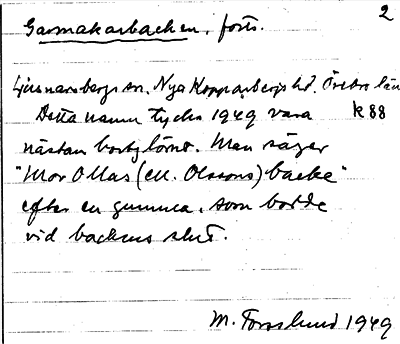 2
Garmakarbacken, forts.
Ljusnarsbergs sn. Nya Kopparbergs hd. Örebro län
Detta namn tycks 1949 vara k 88
nästan bortglömt. Man säger
"Mor Ollas (ell. Olssons) backe"
efter en gumma, som bodde
vid backens slut.
M. Forsslund 1949